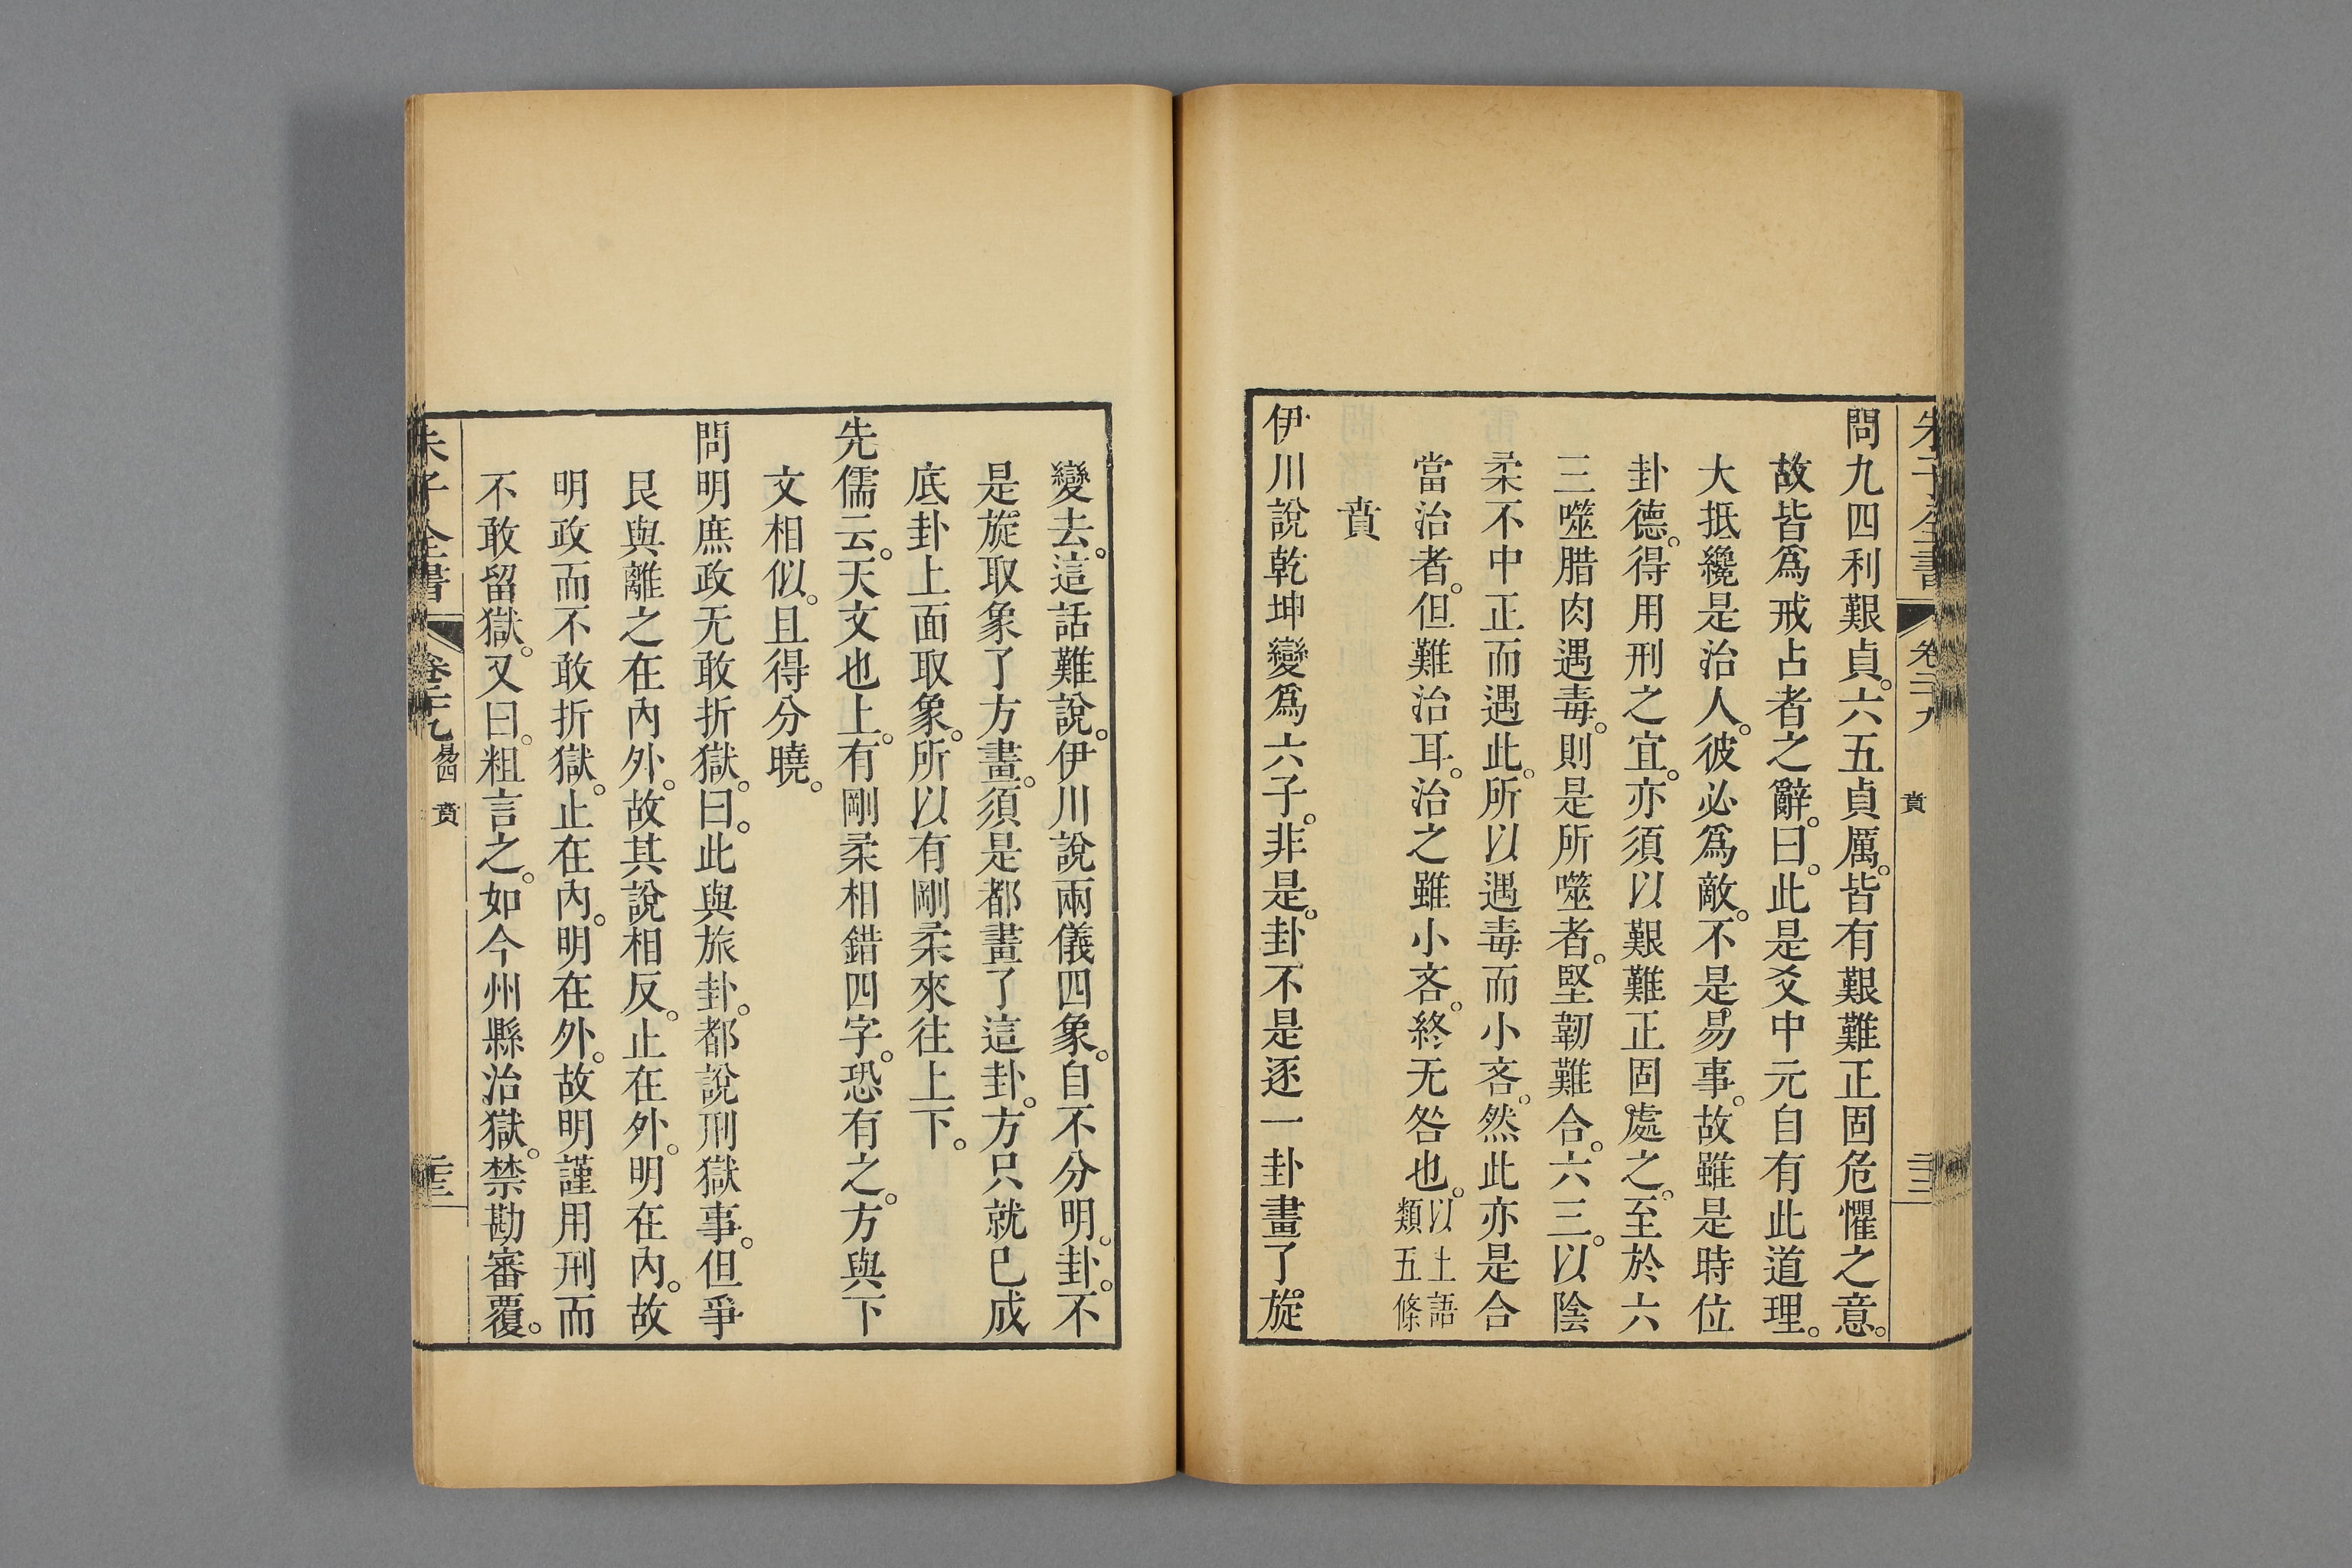 問九四利艱貞。六五貞厲。皆有艱難正固危懼之意。
故皆爲戒占者之辭。曰。此是爻中元自有此道理。
大抵纔是治人。彼必爲敵。不是易事。故雖是時位
卦德。得用刑之宜。亦須以艱難正固處之。至於六
三噬腊肉遇毒。則是所噬者。堅韌難合。六三。以陰
柔不中正而遇此。所以遇毒而小吝。然此亦是合
當治者。但難治耳。治之雖小吝。終无咎也。以上語
類五條
賁
伊川說乾坤變爲六子。非是。卦不是逐一卦畫了。旋
變去。這話難說。伊川說兩儀四象。自不分明。卦。不
是旋取象了方畫。須是都畫了這卦。方只就已成
底卦上面取象。所以有剛柔來往上下。
先儒云。天文也上。有剛柔相錯四字。恐有之。方與下
文相似。且得分曉。
問明庶政无敢折獄。曰。此與旅卦。都說刑獄事。但爭
艮與離之在內外。故其說相反。止在外。明在內。故
明政而不敢折獄。止在內。明在外。故明謹用刑而
不敢留獄。又曰。粗言之。如今州縣治獄。禁勘審覆。
朱子全書 卷二十九 易四 賁